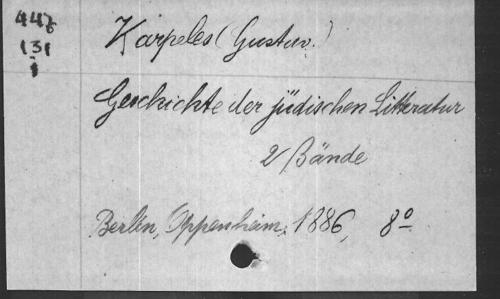 447
131
1
Karpeles (Gustav.)
Geschichte der jüdischen Litteratur
2 Bände
Berlin, Oppenheim, 1886, 8°